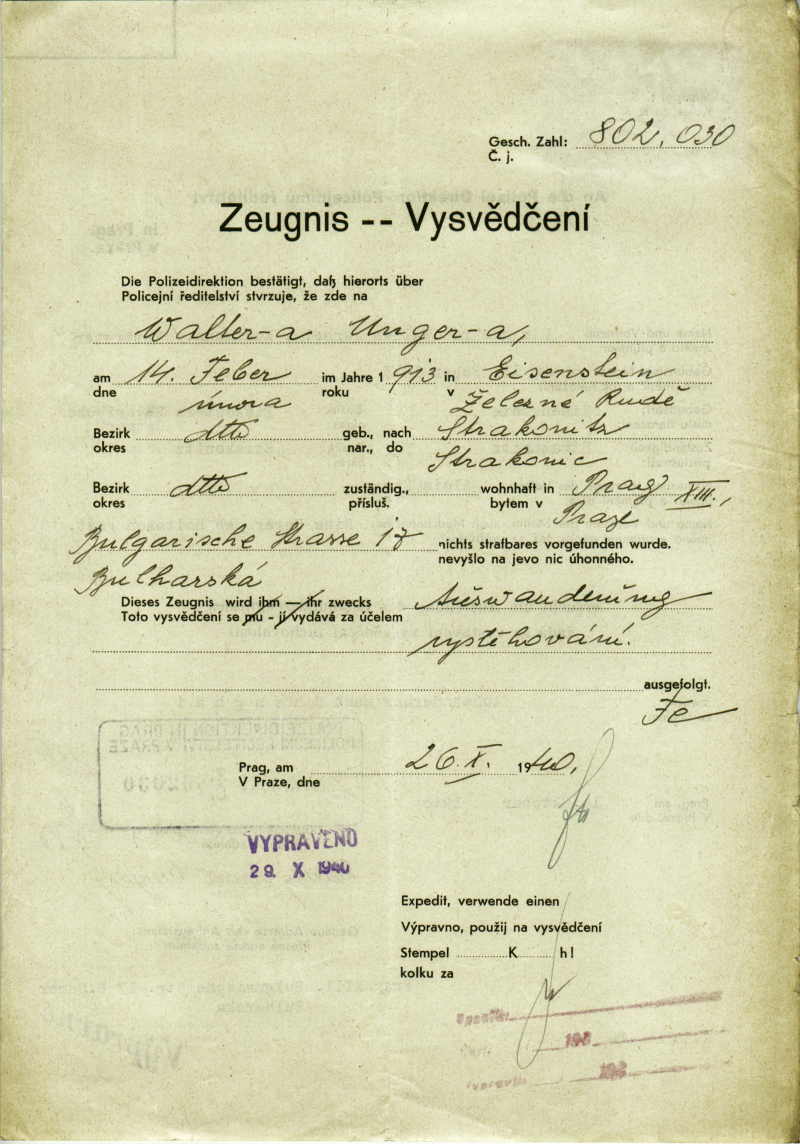 Gesch. Zahl: 802,030
Č. j.
Zeugnis -- Vysvědčení
Die Polizeidirektion bestätigt, daß hierorts über
Policejní ředitelství stvrzuje, že zde na
Walter-a Unger-a,
am 14. Feber im Jahre 1913 in Eisenstein
dne února roku v Železné Rudě
Bezirk dtto geb., nach Strakonitz
okres nar., do Strakonic
Bezirk dtto zuständig., wohnhaft in Prag XIII.,
okres přísluš. bytem v Praze
Bulgarische Strasse 17 nichts strafbares vorgefunden wurde.
Bulharská nevyšlo na jevo nic úhonného.
Dieses Zeugnis wird ihm — ihr zwecks Auswanderung
Toto vysvědčení se mu - jí vydává za účelem
vystěhování.
ausgefolgt.
Fe
Prag, am 26. X. 1940,
V Praze, dne
VYPRAVENO
29. X 1940
Expedit, verwende einen
Výpravno, použij na vysvědčení
Stempel K h!
kolku za